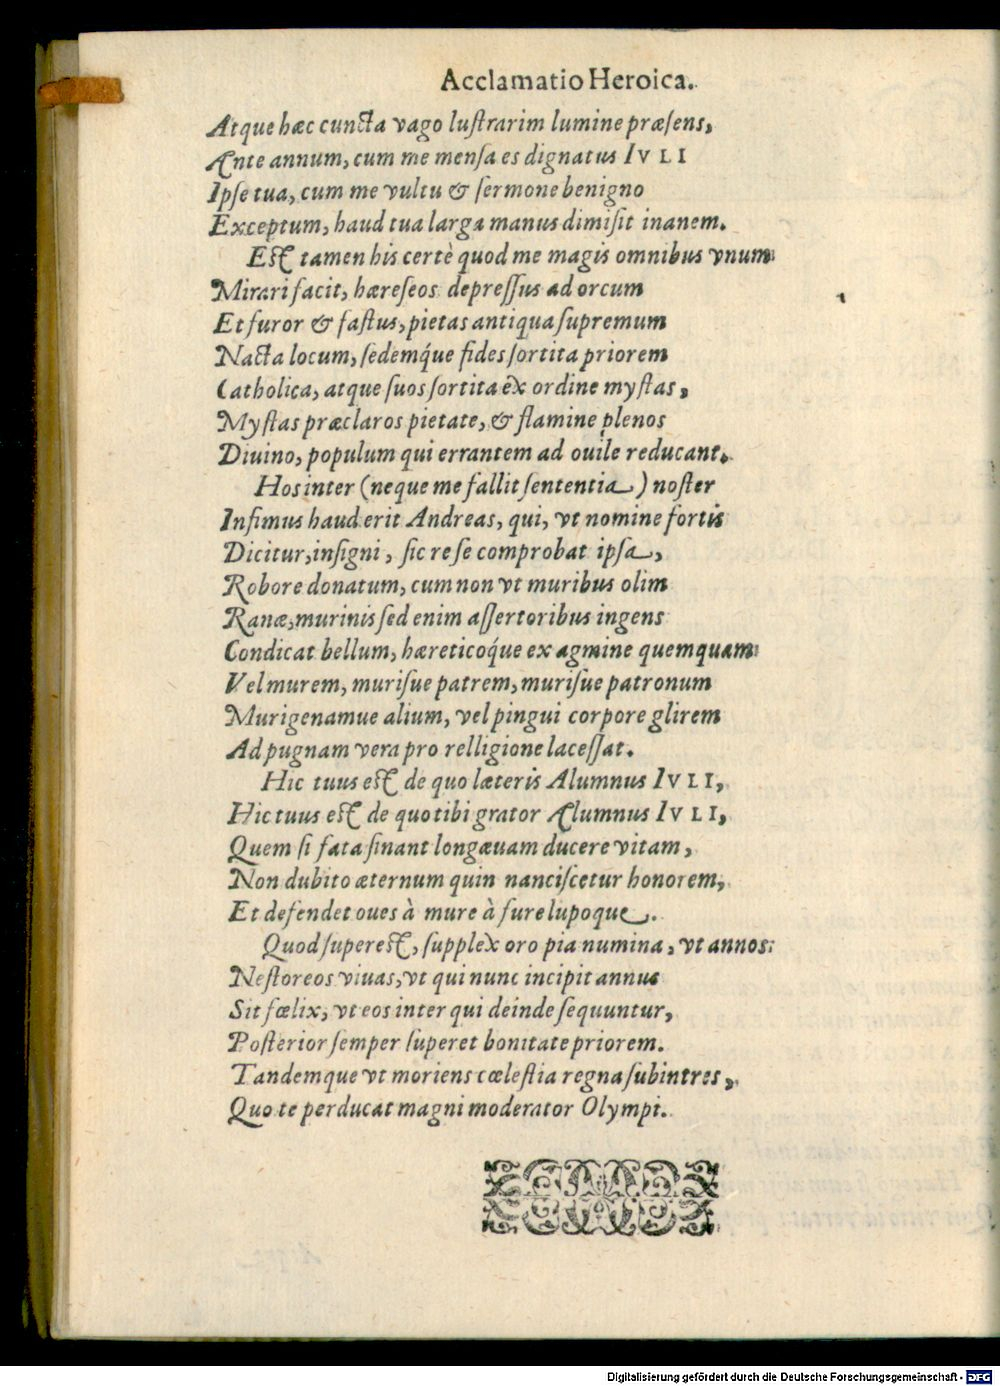 Acclamatio Heroica.
Atque hæc cuncta vago lustrarim lumine præsens,
Ante annum, cum me mensa es dignatus IVLI
Ipse tua, cum me vultu & sermone benigno
Exceptum, haud tua larga manus dimisit inanem.
Est tamen his certè quod me magis omnibus vnum
Mirari facit, hæreseos depressus ad orcum
Et furor & fastus, pietas antiqua supremum
Nacta locum, sedemq́ue fides sortita priorem
Catholica, atque suos sortita ex ordine mystas,
Mystas præclaros pietate, & flamine plenos
Diuino, populum qui errantem ad ouile reducant.
Hos inter (neque me fallit sententia) noster
Infimus haud erit Andreas, qui, vt nomine fortis
Dicitur, insigni, sic re se comprobat ipsa,
Robore donatum, cum non vt muribus olim
Ranæ, murinis sed enim assertoribus ingens
Condicat bellum, hæreticoq́ue ex agmine quemquam
Vel murem, murisue patrem, murisue patronum
Murigenamue alium, vel pingui corpore glirem
Ad pugnam vera pro relligione lacessat.
Hic tuus est de quo læteris Alumnus IVLI,
Hic tuus est de quo tibi grator Alumnus IVLI,
Quem si fata sinant longæuam ducere vitam,
Non dubito æternum quin nanciscetur honorem,
Et defendet oues à mure à fure lupoque.
Quod superest, supplex oro pia numina, vt annos
Nestoreos viuas, vt qui nunc incipit annus
Sit fœlix, vt eos inter qui deinde sequuntur,
Posterior semper superet bonitate priorem.
Tandemque vt moriens cœlestia regna subintres,
Quo te perducat magni moderator Olympi.
Digitalisierung gefördert durch die Deutsche Forschungsgemeinschaft - DFG